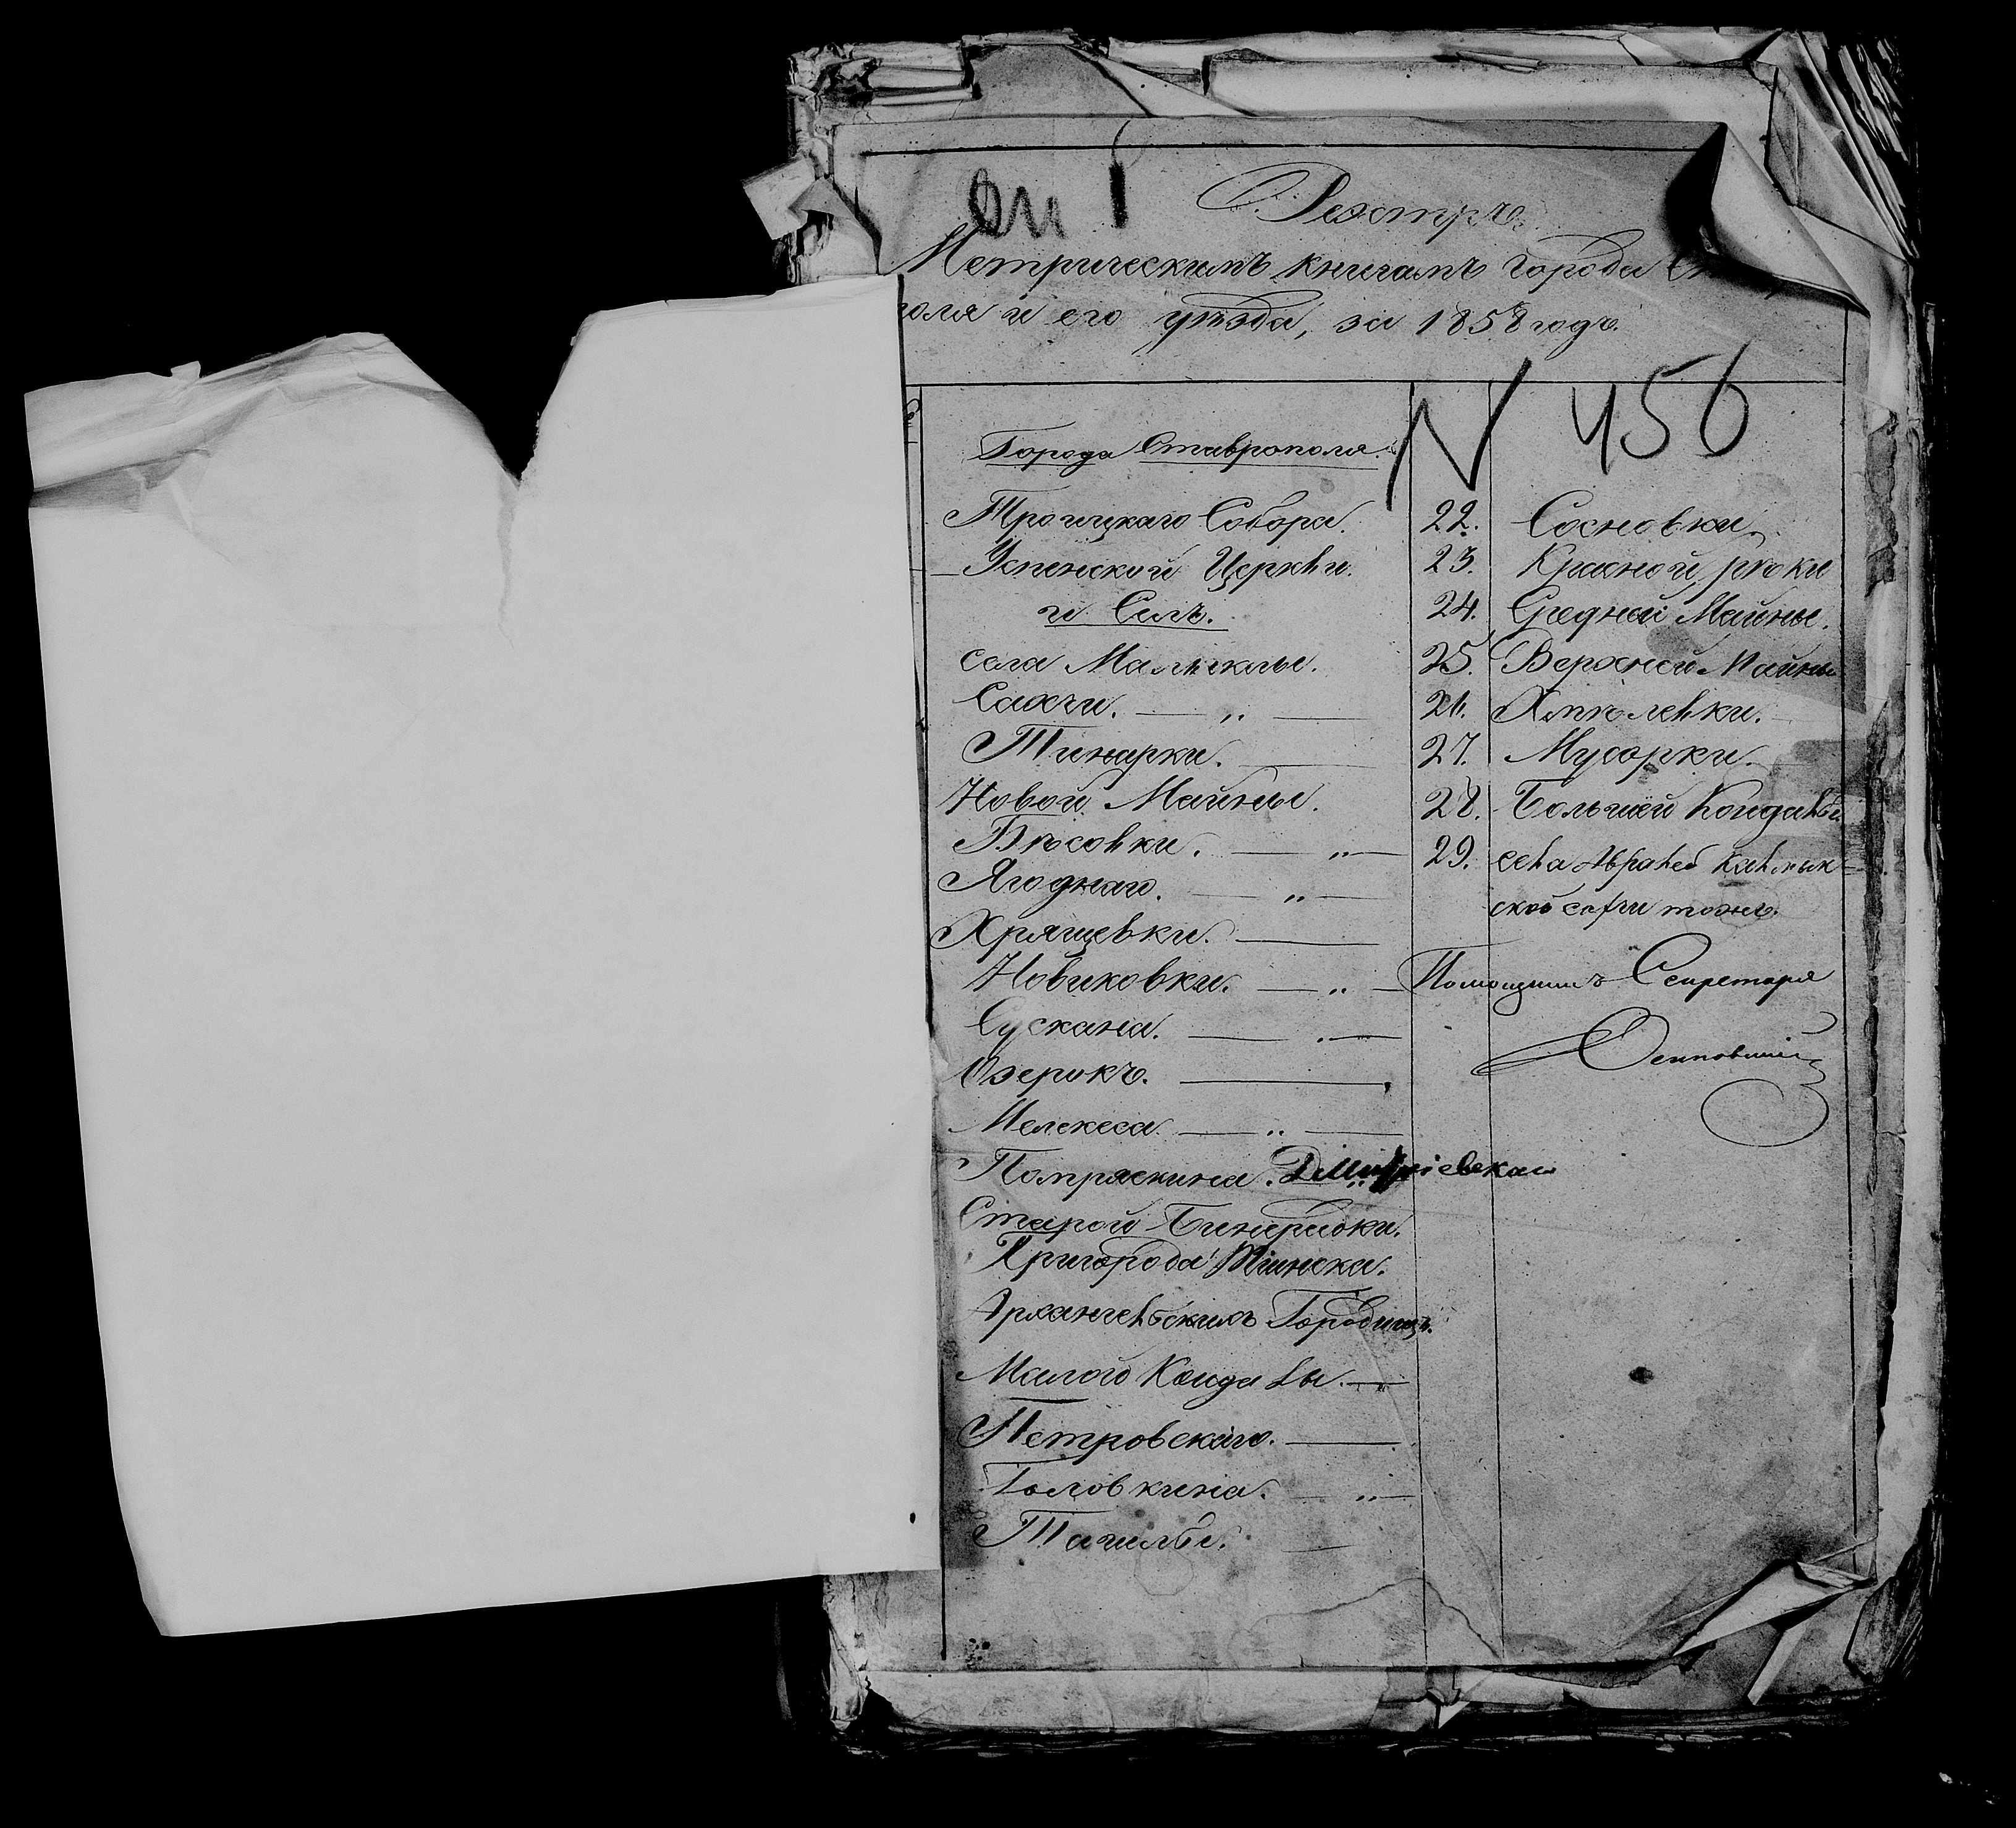 оп 1
Реэстръ
Метрическимъ книгамъ города
поля и его уѣзда, за 1858 годъ.
N 456
Города Ставрополя.
Троицкаго Собора.
Успенской Церкви.
и Селъ.
села Малыклы.
Сахчи. — „ —
Тинарки. —
Новой Майны.
Бѣсовки. — „ —
Ягоднаго. — „ —
Хрящевки. —
Новиковки. — „ —
Сускана. — „ —
Озерокъ. —
Мелекеса. — „ —
Помряскина. Дмитріевскаго
Старой Бинарадки.
Пригорода Тіинска.
Архангельскихъ Городищъ.
Малой Кандалы. —
Петровскаго. —
Головкина. — „ —
Тагилы. —
22. Сосновки.
23. Красной рѣки
24. Средней Майны.
25. Верхней Майны
26. Хмѣлевки.
27. Мусорки.
28. Большей Кандалы.
29. села Абралей Калмык-
ской сахчи тожъ.
Помощникъ Секретаря
Осиповскій